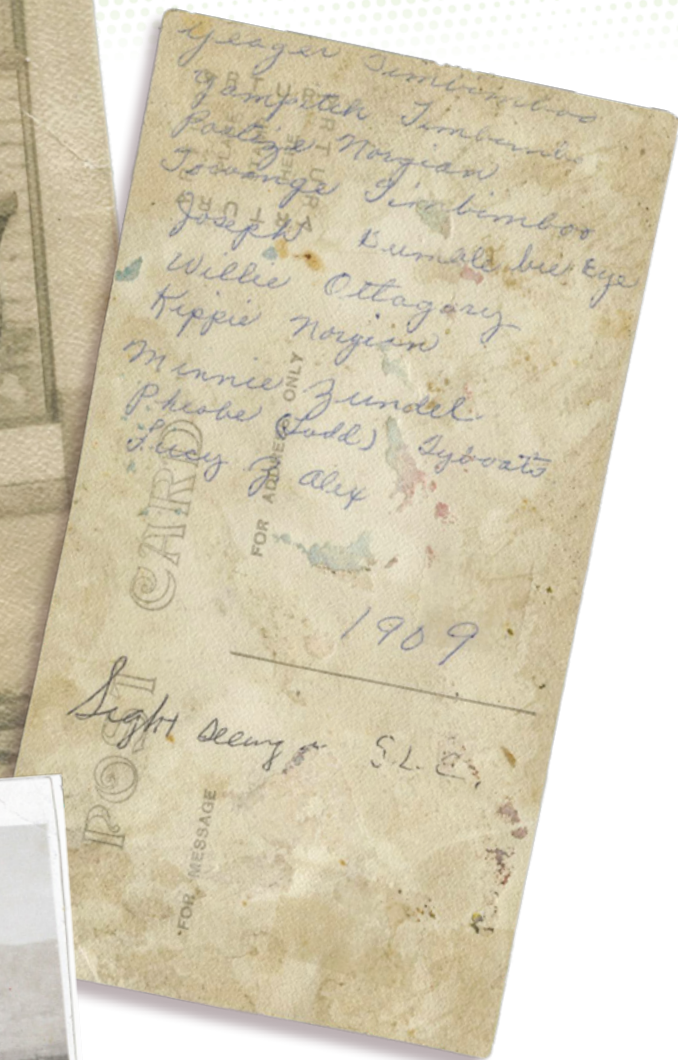 Yeager Timbimboo
Yampitch Timbimboo
Poetzie Norgian
Towange Timbimboo
Joseph Bumble bee Eye
Willie Ottogary
Kippie Norgian
Minnie Zundel
Pheobe (Ladd) Tyboats
Lucy Z Alex
1909
Sight seeing S.L.C.
POST CARD
FOR ADDRESS ONLY
FOR MESSAGE
PLACE
HERE